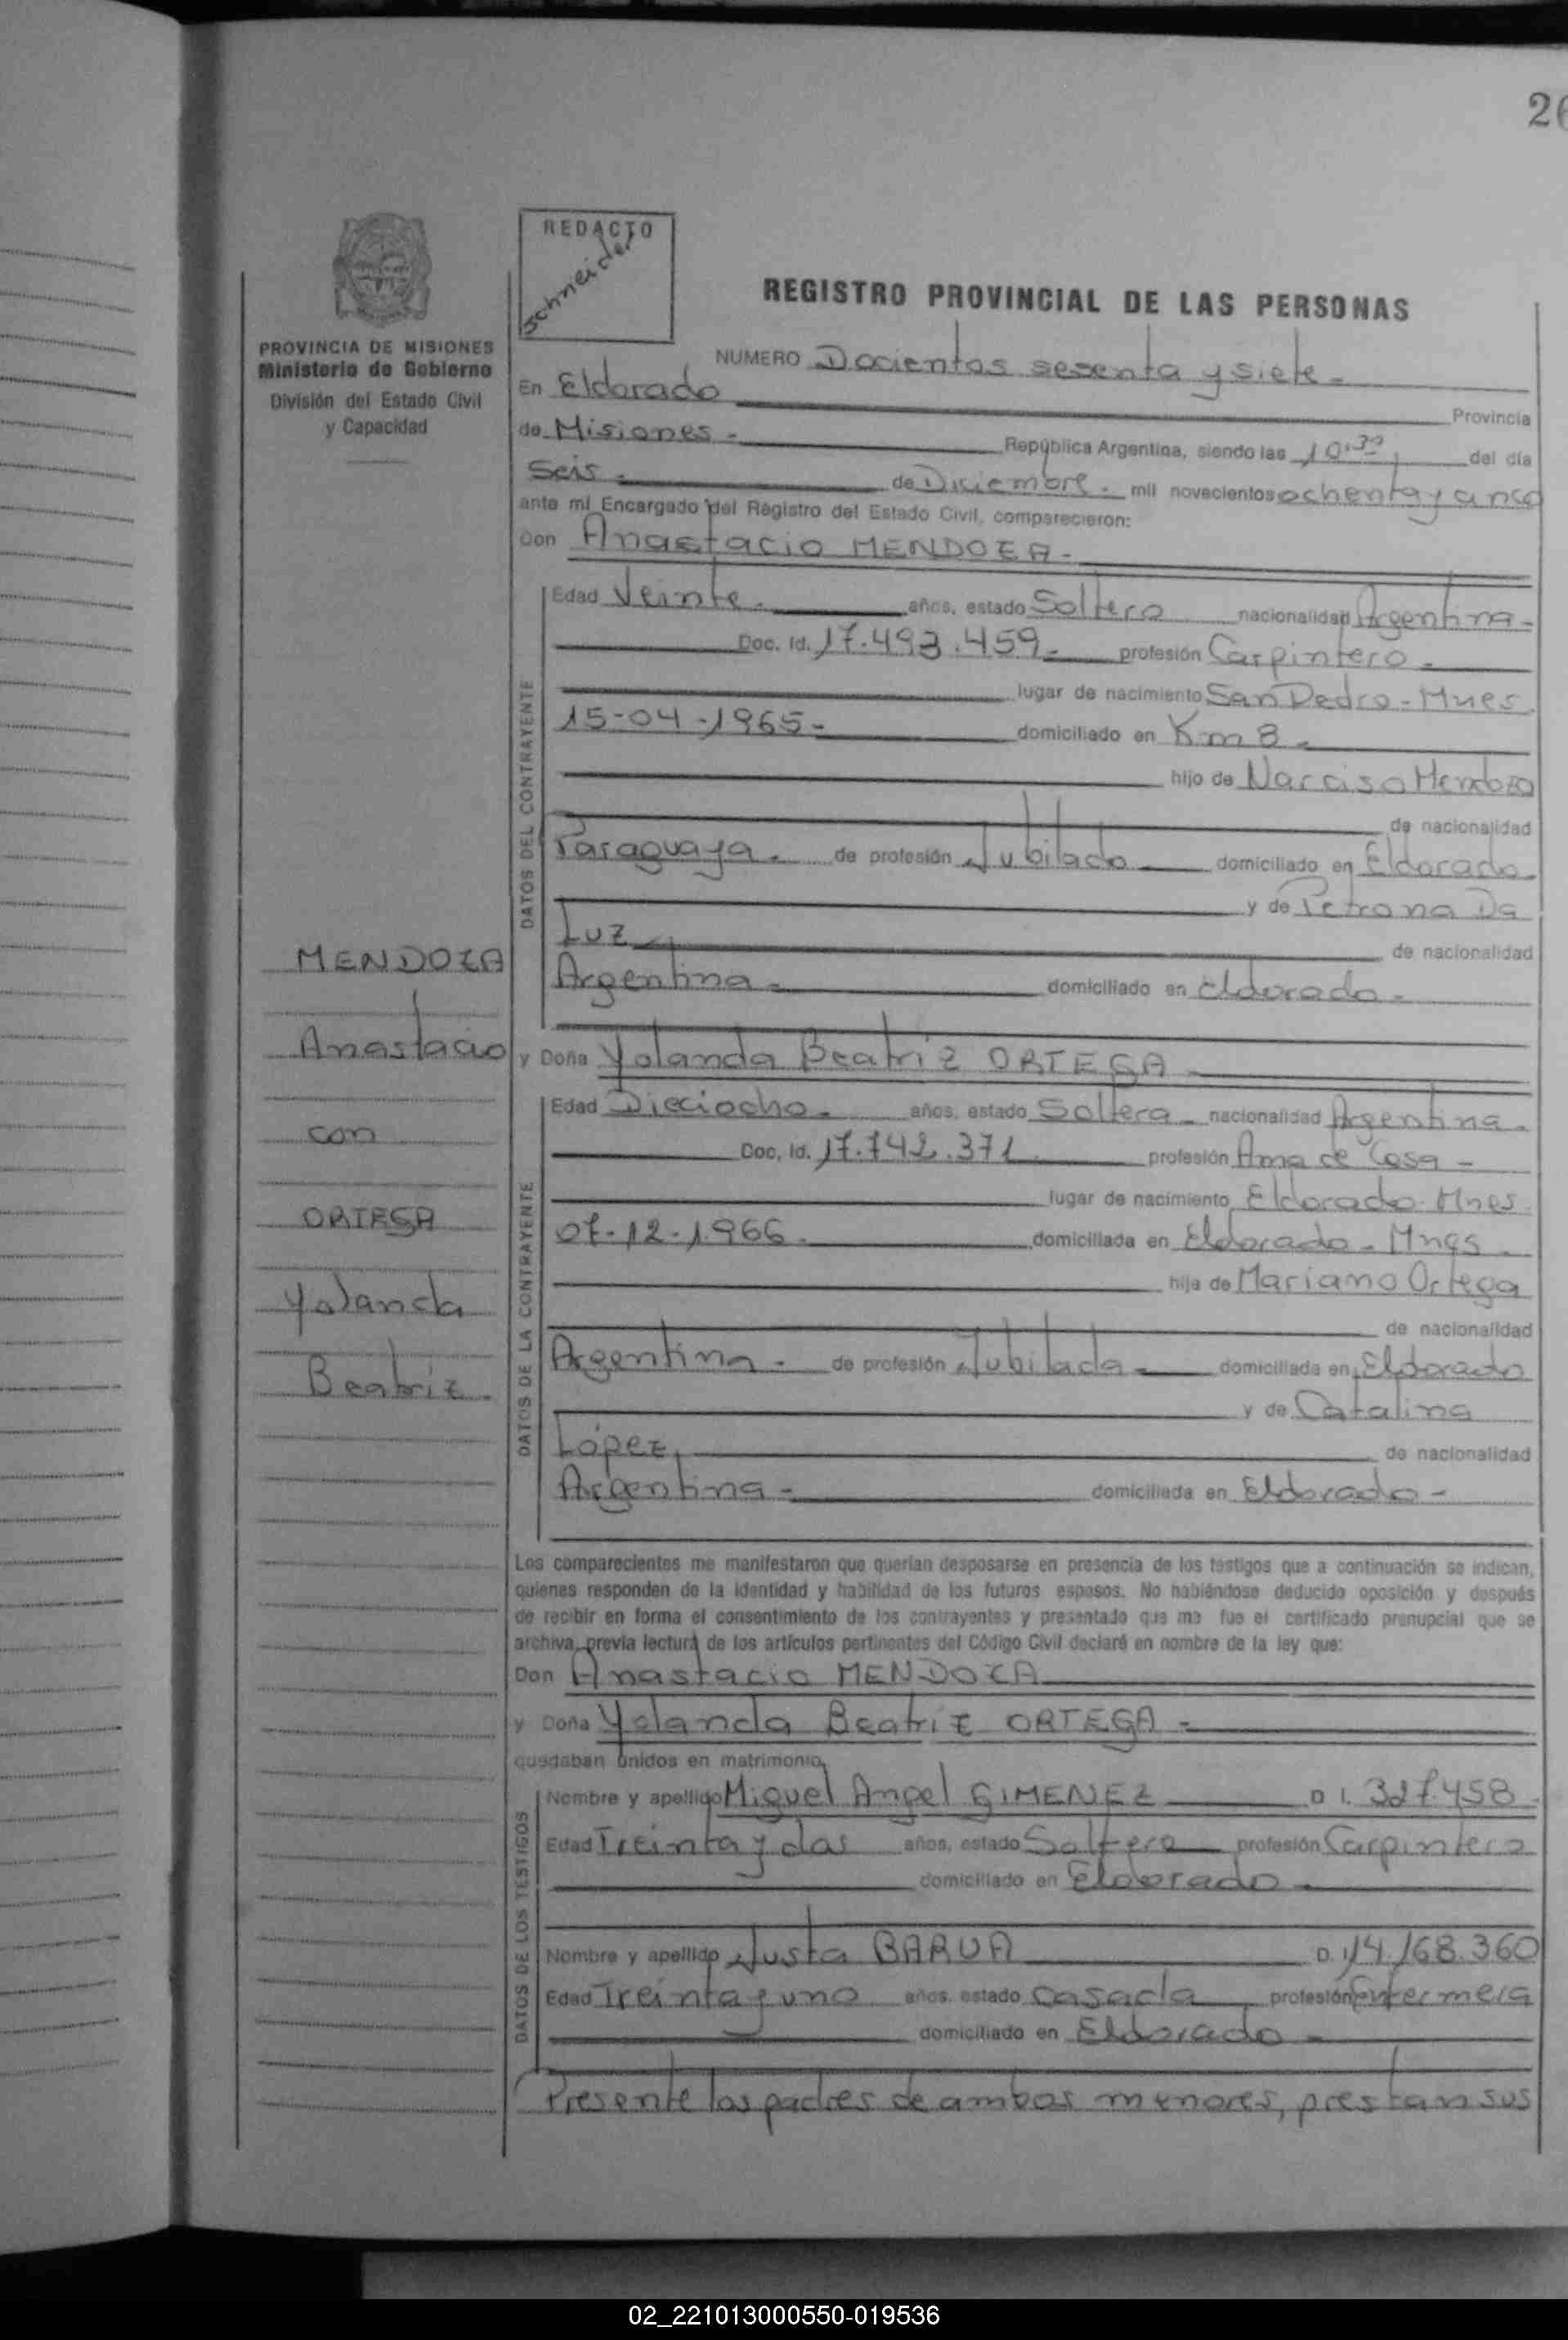 26
REDACTO
Schneider
REGISTRO PROVINCIAL DE LAS PERSONAS
PROVINCIA DE MISIONES
Ministerio de Gobierno
División del Estado Civil
y Capacidad
NUMERO Docientos sesenta y siete -
En Eldorado Provincia
de Misiones - República Argentina, siendo las 10,30, del día
Seis - de Diciembre - mil novecientos ochenta y cinco
ante mi Encargado del Registro del Estado Civil, comparecieron:
Don Anastacio MENDOZA -
DATOS DEL CONTRAYENTE
Edad Veinte - años, estado Soltero nacionalidad Argentina -
Doc. Id. 17.493.459 - profesión Carpintero -
lugar de nacimiento San Pedro - Mnes.
15-04-1965 - domiciliado en Km 8 -
hijo de Narciso Mendoza
de nacionalidad
Paraguaya - de profesión Jubilado - domiciliado en Eldorado -
y de Petrona Da
Luz, de nacionalidad
Argentina - domiciliado en Eldorado -
y Doña Yolanda Beatriz ORTEGA -
DATOS DE LA CONTRAYENTE
Edad Dieciocho - años, estado Soltera - nacionalidad Argentina -
Doc. Id. 17.742.371 profesión Ama de Casa -
lugar de nacimiento Eldorado - Mnes.
07-12-1966 - domiciliada en Eldorado - Mnes -
hija de Mariano Ortega
de nacionalidad
Argentina - de profesión Jubilada - domiciliada en Eldorado
y de Catalina
López, de nacionalidad
Argentina - domiciliada en Eldorado -
MENDOZA
Anastacio
con
ORTEGA
Yolanda
Beatriz -
Los comparecientes me manifestaron que querían desposarse en presencia de los testigos que a continuación se indican,
quienes responden de la identidad y habilidad de los futuros esposos. No habiéndose deducido oposición y después
de recibir en forma el consentimiento de los contrayentes y presentado que me fue el certificado prenupcial que se
archiva, previa lectura de los artículos pertinentes del Código Civil declaré en nombre de la ley que:
Don Anastacio MENDOZA
y Doña Yolanda Beatriz ORTEGA -
quedaban unidos en matrimonio,
DATOS DE LOS TESTIGOS
Nombre y apellido Miguel Angel GIMENEZ D I. 327.458 -
Edad Treinta y dos años, estado Soltero profesión Carpintero
domiciliado en Eldorado -
Nombre y apellido Justa BARUA D. I 14.168.360
Edad Treinta y uno años, estado casada, profesión Enfermera
domiciliado en Eldorado -
Presente los padres de ambos menores, prestan sus
02_221013000550-019536